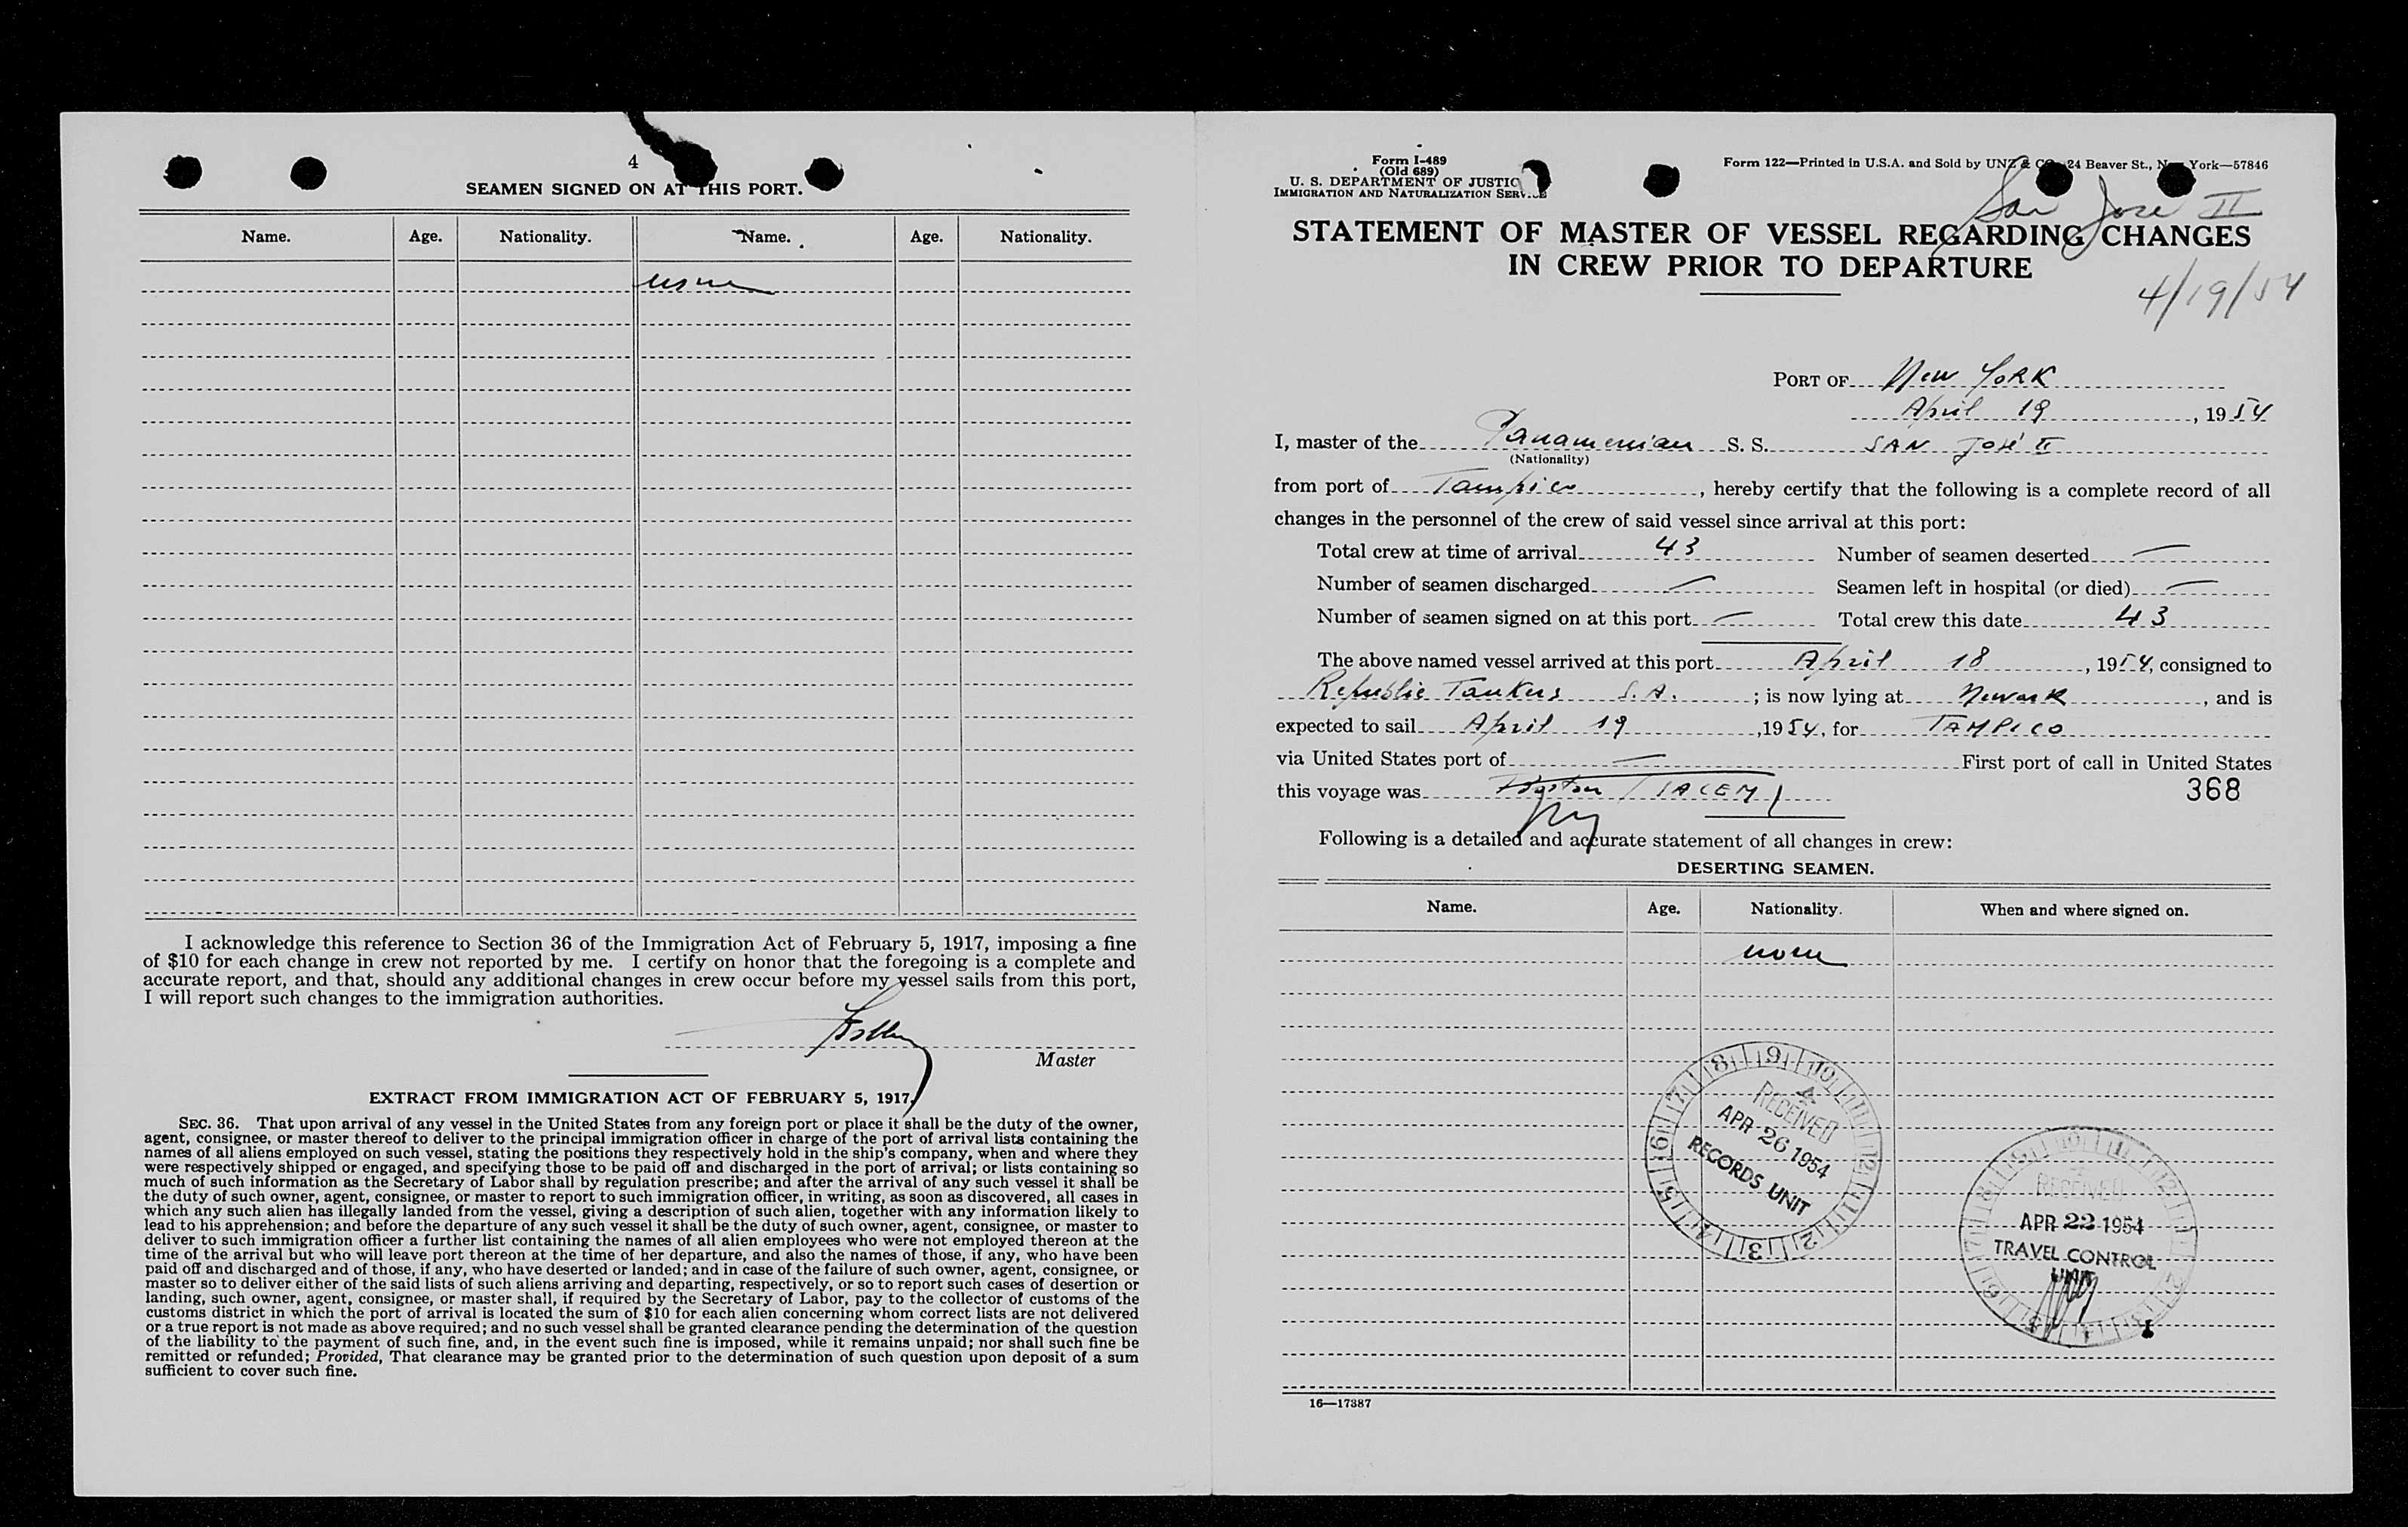 4
SEAMEN SIGNED ON AT THIS PORT.
Name. Age. Nationality. Name. Age. Nationality.
none
I acknowledge this reference to Section 36 of the Immigration Act of February 5, 1917, imposing a fine
of $10 for each change in crew not reported by me. I certify on honor that the foregoing is a complete and
accurate report, and that, should any additional changes in crew occur before my vessel sails from this port,
I will report such changes to the immigration authorities.
Master
EXTRACT FROM IMMIGRATION ACT OF FEBRUARY 5, 1917.
SEC. 36. That upon arrival of any vessel in the United States from any foreign port or place it shall be the duty of the owner,
agent, consignee, or master thereof to deliver to the principal immigration officer in charge of the port of arrival lists containing the
names of all aliens employed on such vessel, stating the positions they respectively hold in the ship's company, when and where they
were respectively shipped or engaged, and specifying those to be paid off and discharged in the port of arrival; or lists containing so
much of such information as the Secretary of Labor shall by regulation prescribe; and after the arrival of any such vessel it shall be
the duty of such owner, agent, consignee, or master to report to such immigration officer, in writing, as soon as discovered, all cases in
which any such alien has illegally landed from the vessel, giving a description of such alien, together with any information likely to
lead to his apprehension; and before the departure of any such vessel it shall be the duty of such owner, agent, consignee, or master to
deliver to such immigration officer a further list containing the names of all alien employees who were not employed thereon at the
time of the arrival but who will leave port thereon at the time of her departure, and also the names of those, if any, who have been
paid off and discharged and of those, if any, who have deserted or landed; and in case of the failure of such owner, agent, consignee, or
master so to deliver either of the said lists of such aliens arriving and departing, respectively, or so to report such cases of desertion or
landing, such owner, agent, consignee, or master shall, if required by the Secretary of Labor, pay to the collector of customs of the
customs district in which the port of arrival is located the sum of $10 for each alien concerning whom correct lists are not delivered
or a true report is not made as above required; and no such vessel shall be granted clearance pending the determination of the question
of the liability to the payment of such fine, and, in the event such fine is imposed, while it remains unpaid; nor shall such fine be
remitted or refunded; Provided, That clearance may be granted prior to the determination of such question upon deposit of a sum
sufficient to cover such fine.
Form I-489
(Old 689)
U. S. DEPARTMENT OF JUSTIC
IMMIGRATION AND NATURALIZATION SERVICE
Form 122—Printed in U.S.A. and Sold by UNZ & CO., 24 Beaver St., New York—57846
San Jose II
STATEMENT OF MASTER OF VESSEL REGARDING CHANGES
IN CREW PRIOR TO DEPARTURE
4/19/54
PORT OF New YORK
April 19, 1954
I, master of the Panamenian S. S. SAN José II
(Nationality)
from port of Tampico, hereby certify that the following is a complete record of all
changes in the personnel of the crew of said vessel since arrival at this port:
Total crew at time of arrival 43 Number of seamen deserted —
Number of seamen discharged — Seamen left in hospital (or died) —
Number of seamen signed on at this port — Total crew this date 43
The above named vessel arrived at this port April 18, 1954, consigned to
Republic Tankers S.A.; is now lying at Newark, and is
expected to sail April 19, 1954, for TAMPICO
via United States port of — First port of call in United States
this voyage was Boston
NY
368
Following is a detailed and accurate statement of all changes in crew:
DESERTING SEAMEN.
Name. Age. Nationality. When and where signed on.
none
RECEIVED
APR 26 1954
RECORDS UNIT
RECEIVED
APR 22 1954
TRAVEL CONTROL
UNIT
16—17387